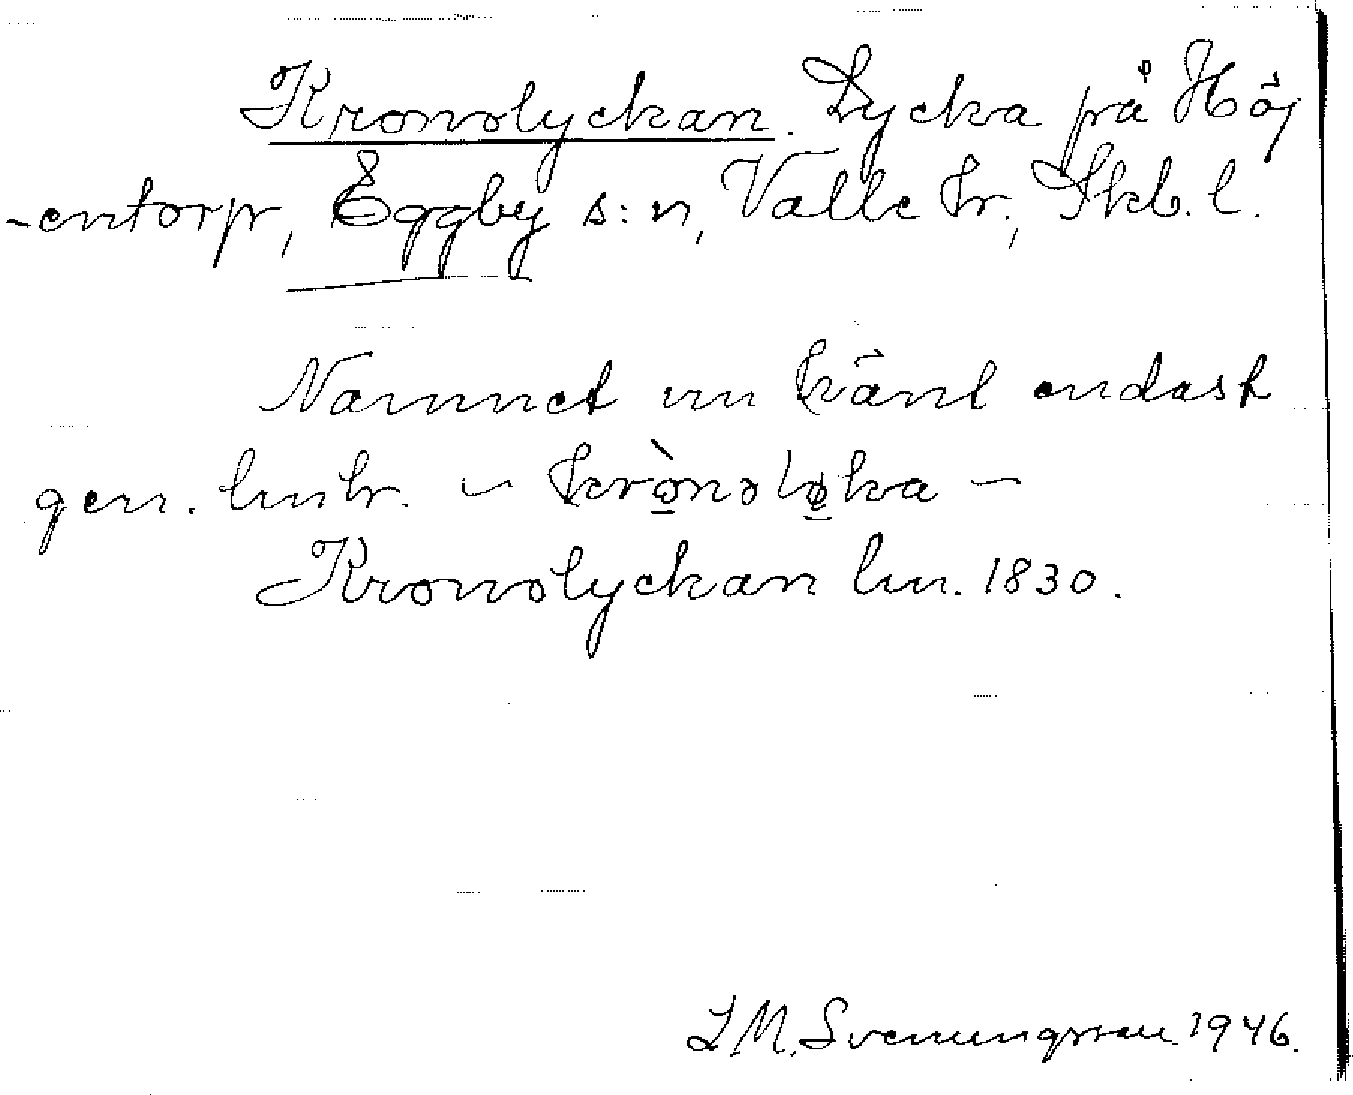 Kronolyckan. Lycka på Höj
-entorp, Eggby s:n, Valle hr., Skb. l.
Namnet nu känt endast
gen. lmhr. – krònoløka –
Kronolyckan lm. 1830.
L M. Svenungsson 1946.